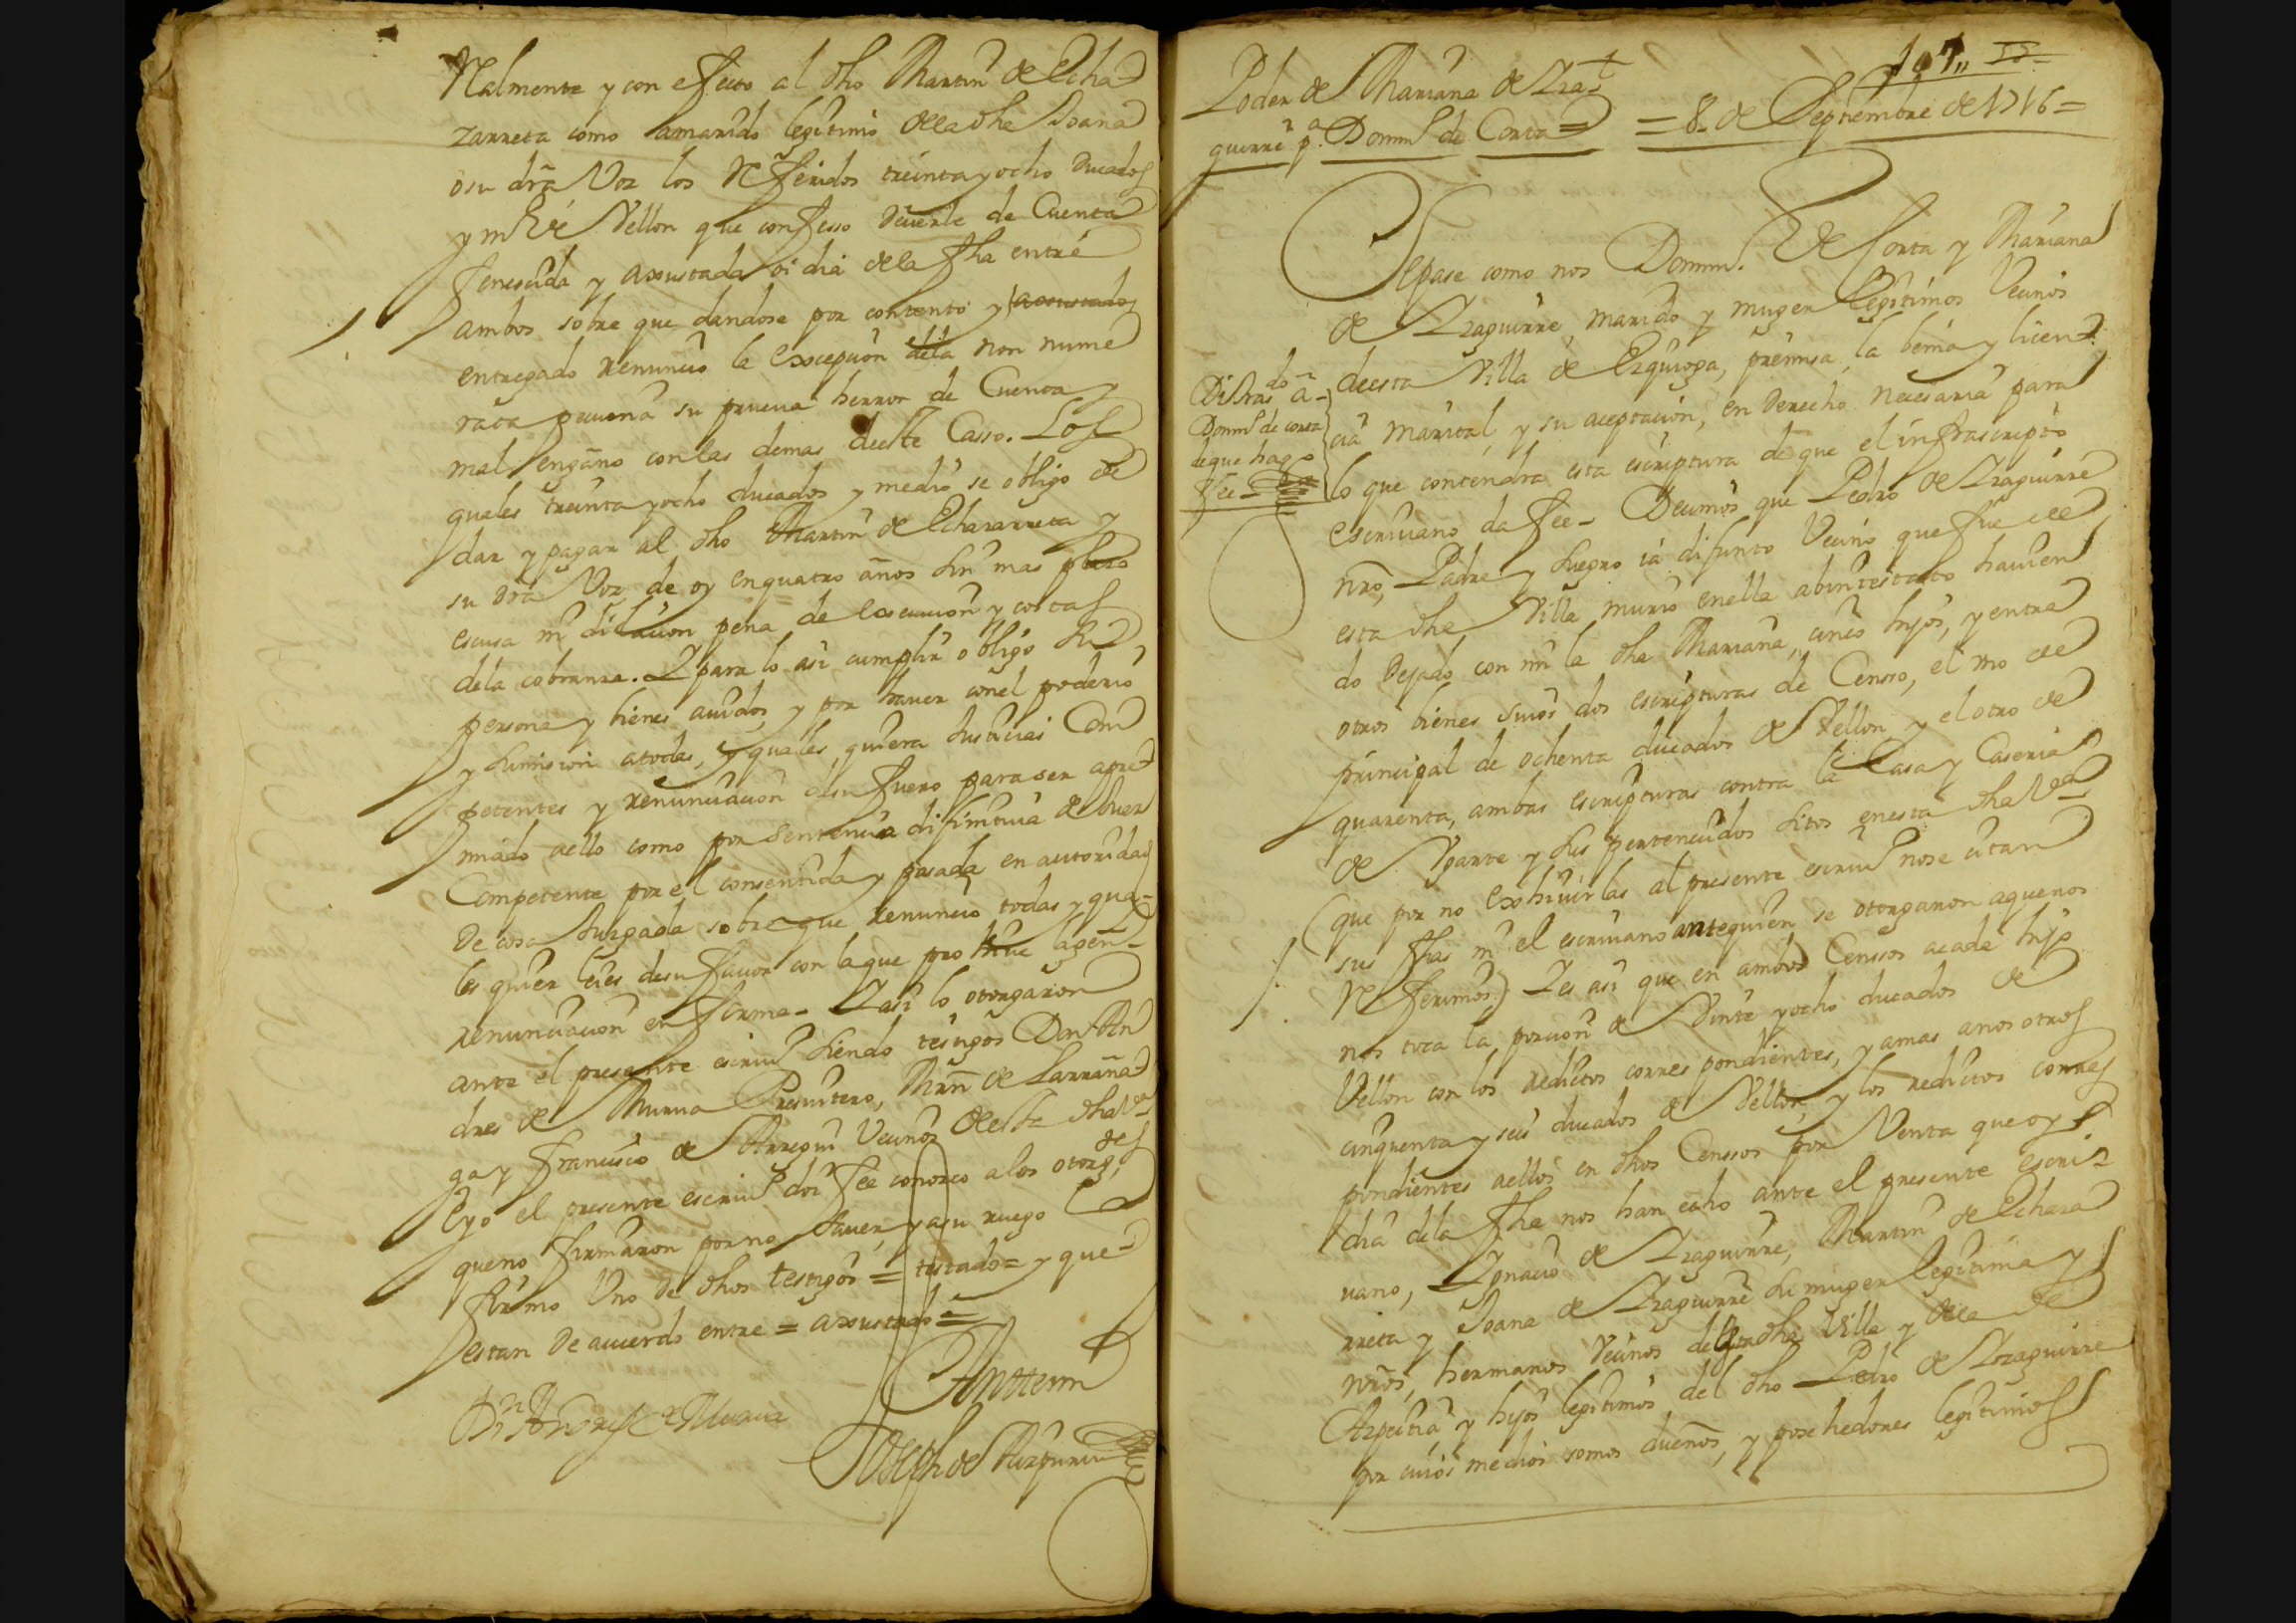 Realmente y con efecto al dho Martin de Echa
zarreta como a marido legitimo dela dha Joana
o su dra Voz los Referidos treinta y ocho ducados
y m.º de Vellon que confesso deuerle de Cuenta
fenescida y axustada oi dia dela fha entre
ambos sobre que dandose por contento y axustado
entregado renuncio la excepcion dela non nume
rata pecunia su prueua herror de Cuenta y
mal engaño con las demas deeste Casso. Los
quales treinta y ocho ducados y medio se obligo de
dar y pagar al dho Martin de Echazarreta y
su dra Voz de oy en quatro años sin mas plazo
escusa ni dilacion pena de execucion y costas
dela cobranza. Y para lo asi cumplir obligo su
persona y bienes auidos y por hauer con el poderio
y sumision a todas, y quales quiera Justicias Com
petentes y renunciacion de su fuero para ser apre
miado a ello como por sentencia difinitiua de Juez
Competente por el consentida y pasada en autoridad
de cosa Juzgada sobre que renuncio todas y qua-
les quier leies de su fauor con la que prohiue la gen.l
renunciacion en forma- Y asi lo otorgaron
ante el presente escriu.º siendo testigos Don An
dres de Murua Presuitero, Mrn de Larraña
ga y Francisco de Arregui Vecinos de esta dha V.ª
E yo el presente escriu.º doi fee conozco a los otorg.tes
que no firmaron por no sauer, y a su ruego
firmo Vno de dhos testigos = testado = y que
estan de acuerdo entre = axustado =
D.n Andres de Murua
Ante mi
Joseph de Aizpuru
107,,
Poder de Mariana de Yza
guirre p.ª Domin.º de Corta =
= 8- de Septiembre de 1716 =
Sepase como nos Domin.º de Corta y Mariana
de Yzaguirre, marido y muger legitimos Vecinos
deesta Villa de Ezquioga, premisa la benia y licen
cia marital, y su aceptacion, en derecho necesaria para
lo que contendra esta escriptura de que el infrascripto
escriuano da fee- Decimos que Pedro de Yzaguirre
nro, Padre y suegro ia difunto Vecino que fue de
esta dha Villa murio en ella abintestato hauien
do dejado con mi la dha Mariana, cinco hijos, y entre
otros bienes suios dos escripturas de Censso, el vno de
principal de ochenta ducados de Vellon y el otro de
quarenta, ambas escripturas contra la Casa y Caseria
de Vgarte y sus pertenecidos sitos en esta dha V.ª
(que por no exhiuirlas al presente escriu.º no se citan
sus fhas ni el escriuano ante quien se otorgaron a que nos
Referimos) Y es asi que en ambos Censsos a cada hijo
nos toca la porcion de Vinte y ocho ducados de
Vellon con los redictos correspondientes, y a mas a nosotros
cinquenta y seis ducados de Vellon, y los redictos corres
pondientes a ellos en dhos Censsos por Venta que oy
dia dela fha nos han echo ante el presente escri-
uano, Ygnacio de Yzaguirre, Martin de Echaza
rreta y Joana de Yzaguirre su muger legitima y
nros, hermanos Vecinos de esta dha Villa y dela de
Azpeitia y hijos legitimos del dho Pedro de Yzaguirre
por cuios medios somos dueños, y posehedores legitimos
Dise tras.do a
Domin.º de corta
de que hago
Fee-